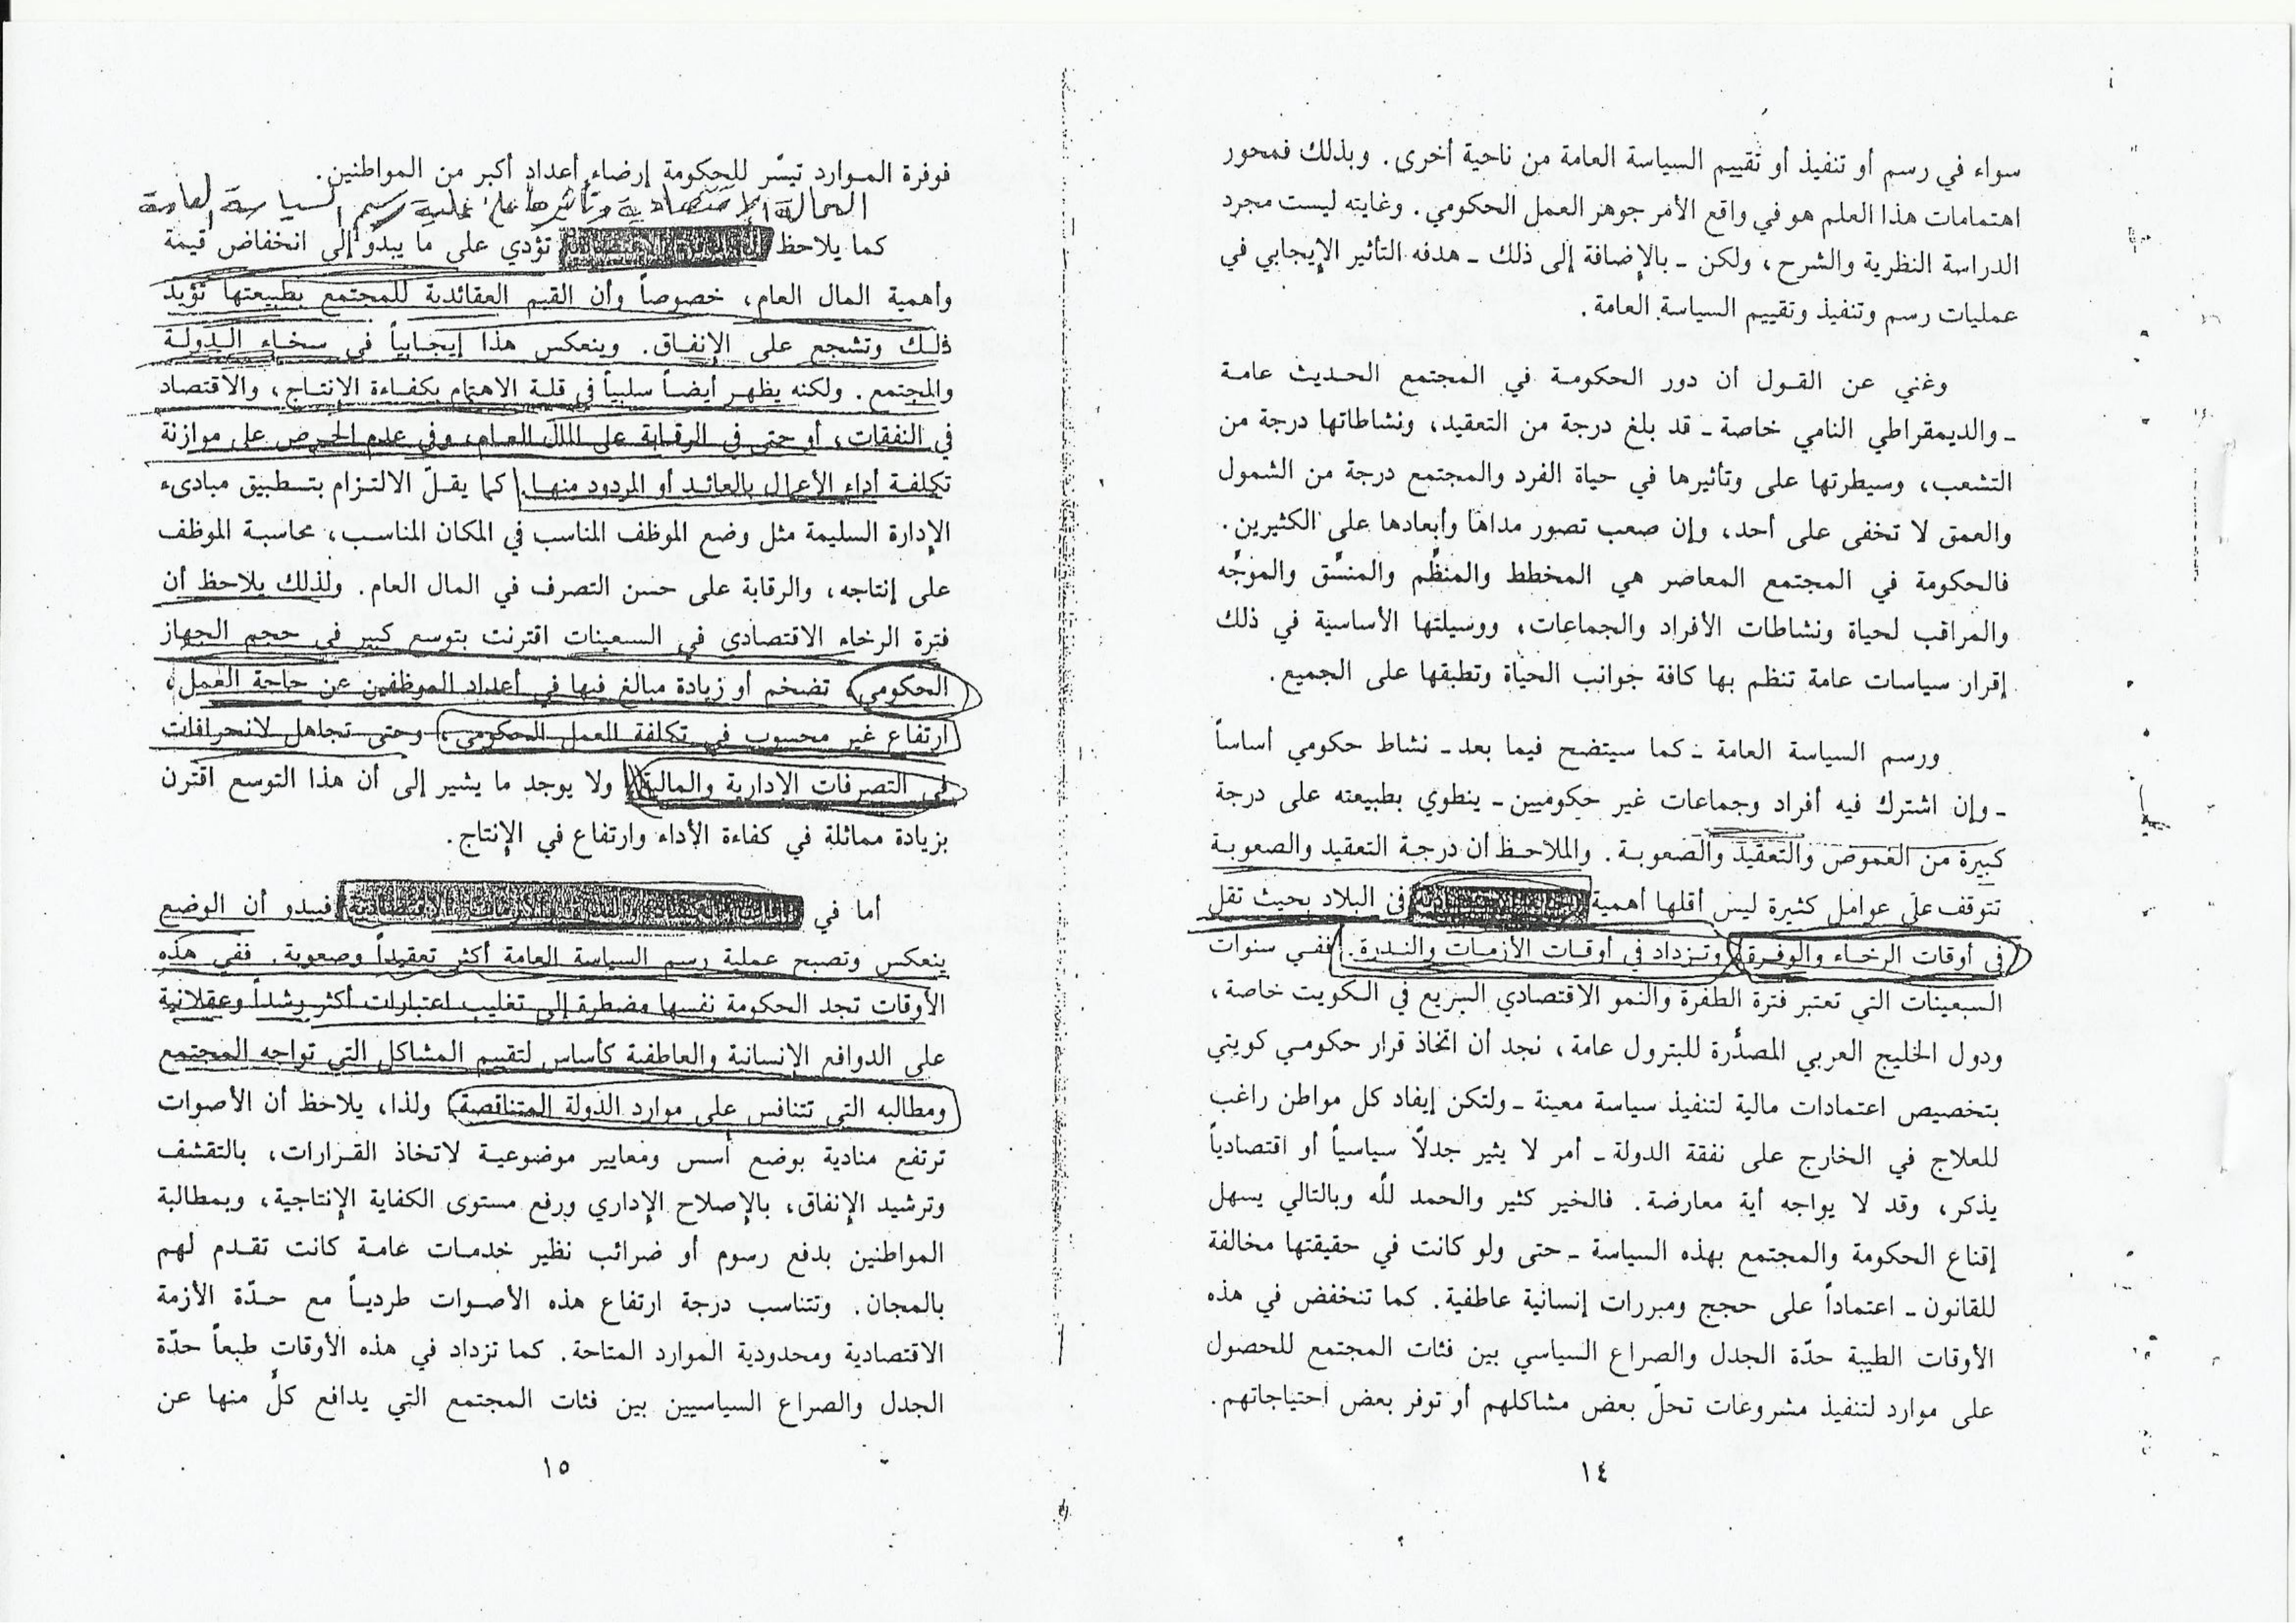 سواء في رسم أو تنفيذ أو تقييم السياسة العامة من ناحية أخرى. وبذلك فمحور
اهتمامات هذا العلم هو في واقع الأمر جوهر العمل الحكومي. وغايته ليست مجرد
الدراسة النظرية والشرح، ولكن ـ بالإضافة إلى ذلك ـ هدفه التأثير الإيجابي في
عمليات رسم وتنفيذ وتقييم السياسة العامة.
وغني عن القول أن دور الحكومة في المجتمع الحديث عامة
ـ والديمقراطي النامي خاصة ـ قد بلغ درجة من التعقيد، ونشاطاتها درجة من
التشعب، وسيطرتها على وتأثيرها في حياة الفرد والمجتمع درجة من الشمول
والعمق لا تخفى على أحد، وإن صعب تصور مداها وأبعادها على الكثيرين.
فالحكومة في المجتمع المعاصر هي المخطط والمنظّم والمنسّق والموجّه
والمراقب لحياة ونشاطات الأفراد والجماعات، ووسيلتها الأساسية في ذلك
إقرار سياسات عامة تنظم بها كافة جوانب الحياة وتطبقها على الجميع.
ورسم السياسة العامة ـ كما سيتضح فيما بعد ـ نشاط حكومي أساساً
ـ وإن اشترك فيه أفراد وجماعات غير حكوميين ـ ينطوي بطبيعته على درجة
كبيرة من الغموض والتعقيد والصعوبة. والملاحظ أن درجة التعقيد والصعوبة
تتوقف على عوامل كثيرة ليس أقلها أهمية الحالة الاقتصادية في البلاد بحيث تقل
في أوقات الرخاء والوفرة وتزداد في أوقات الأزمات والندرة. ففي سنوات
السبعينات التي تعتبر فترة الطفرة والنمو الاقتصادي السريع في الكويت خاصة،
ودول الخليج العربي المصدّرة للبترول عامة، نجد أن اتخاذ قرار حكومي كويتي
بتخصيص اعتمادات مالية لتنفيذ سياسة معينة ـ ولتكن إيفاد كل مواطن راغب
للعلاج في الخارج على نفقة الدولة ـ أمر لا يثير جدلاً سياسياً أو اقتصادياً
يذكر، وقد لا يواجه أية معارضة. فالخير كثير والحمد لله وبالتالي يسهل
إقناع الحكومة والمجتمع بهذه السياسة ـ حتى ولو كانت في حقيقتها مخالفة
للقانون ـ اعتماداً على حجج ومبررات إنسانية عاطفية. كما تنخفض في هذه
الأوقات الطيبة حدّة الجدل والصراع السياسي بين فئات المجتمع للحصول
على موارد لتنفيذ مشروعات تحلّ بعض مشاكلهم أو توفر بعض احتياجاتهم.
١٤
فوفرة الموارد تيسّر للحكومة إرضاء أعداد أكبر من المواطنين.
الحالة الاقتصادية وتأثيرها على عملية رسم السياسة العامة
كما يلاحظ تؤدي على ما يبدو إلى انخفاض قيمة
وأهمية المال العام، خصوصاً وأن القيم العقائدية للمجتمع بطبيعتها تؤيد
ذلك وتشجع على الإنفاق. وينعكس هذا إيجابياً في سخاء الدولة
والمجتمع. ولكنه يظهر أيضاً سلبياً في قلة الاهتمام بكفاءة الإنتاج، والاقتصاد
في النفقات، أو حتى في الرقابة على المال العام، وفي عدم الحرص على موازنة
تكلفة أداء الأعمال بالعائد أو المردود منها. كما يقلّ الالتزام بتطبيق مبادىء
الإدارة السليمة مثل وضع الموظف المناسب في المكان المناسب، محاسبة الموظف
على إنتاجه، والرقابة على حسن التصرف في المال العام. ولذلك يلاحظ أن
فترة الرخاء الاقتصادي في السبعينات اقترنت بتوسع كبير في حجم الجهاز
الحكومي، تضخم أو زيادة مبالغ فيها في أعداد الموظفين عن حاجة العمل،
ارتفاع غير محسوب في تكلفة العمل الحكومي، وحتى تجاهل لانحرافات
في التصرفات الإدارية والمالية. ولا يوجد ما يشير إلى أن هذا التوسع اقترن
بزيادة مماثلة في كفاءة الأداء وارتفاع في الإنتاج.
أما في فيبدو أن الوضع
ينعكس وتصبح عملية رسم السياسة العامة أكثر تعقيداً وصعوبة. ففي هذه
الأوقات تجد الحكومة نفسها مضطرة إلى تغليب اعتبارات أكثر رشداً وعقلانية
على الدوافع الإنسانية والعاطفية كأساس لتقييم المشاكل التي تواجه المجتمع
ومطالبه التي تتنافس على موارد الدولة المتناقصة. ولذا، يلاحظ أن الأصوات
ترتفع منادية بوضع أسس ومعايير موضوعية لاتخاذ القرارات، بالتقشف
وترشيد الإنفاق، بالإصلاح الإداري ورفع مستوى الكفاية الإنتاجية، وبمطالبة
المواطنين بدفع رسوم أو ضرائب نظير خدمات عامة كانت تقدم لهم
بالمجان. وتتناسب درجة ارتفاع هذه الأصوات طردياً مع حدّة الأزمة
الاقتصادية ومحدودية الموارد المتاحة. كما تزداد في هذه الأوقات طبعاً حدّة
الجدل والصراع السياسيين بين فئات المجتمع التي يدافع كلّ منها عن
١٥